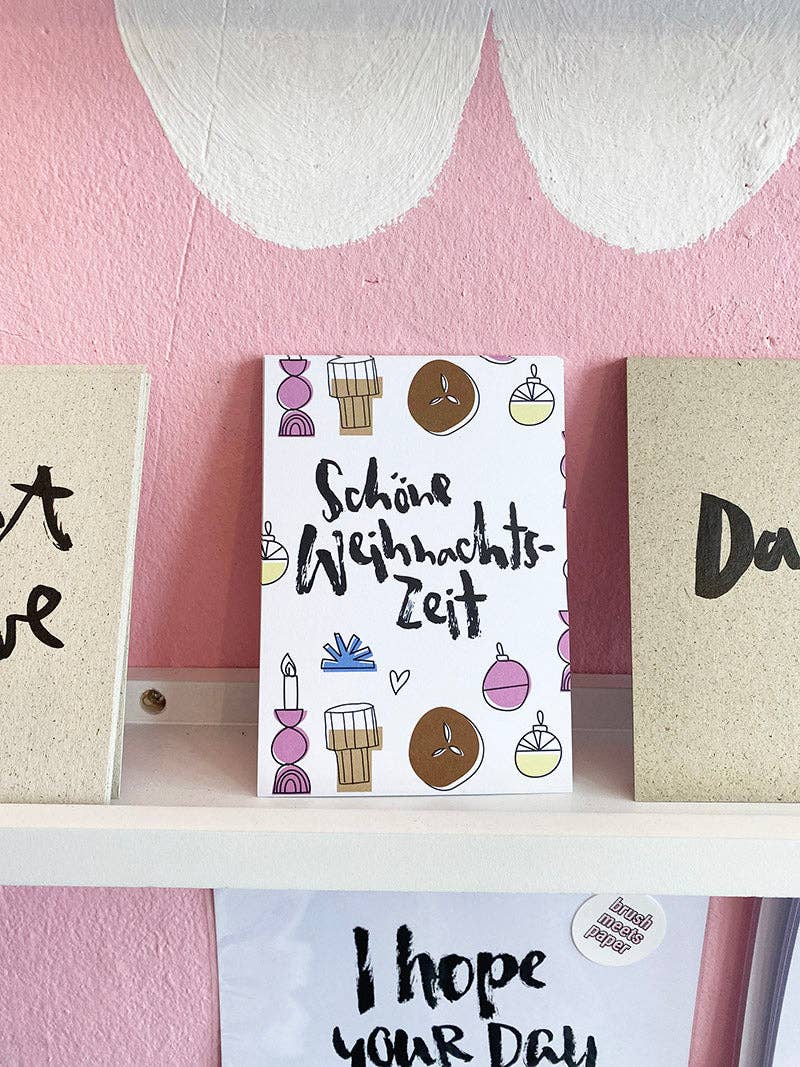 Schöne
Weihnachts-
Zeit
I hope
your Day
brush
meets
paper